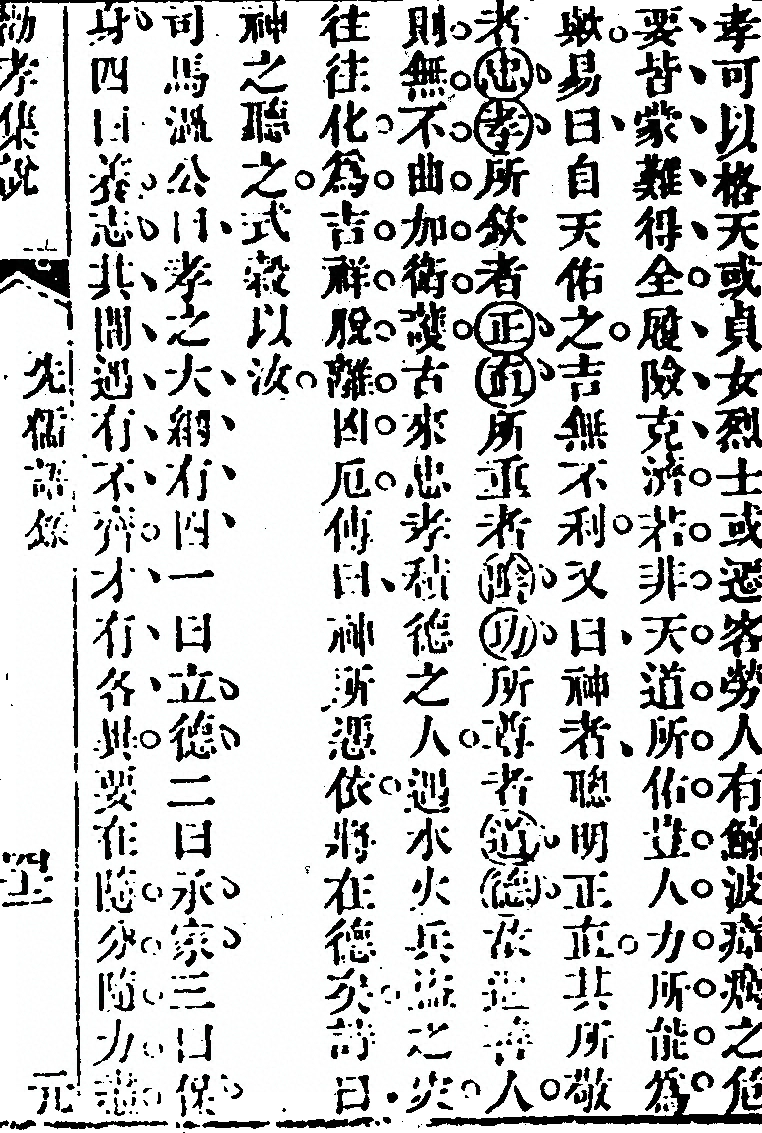 孝可以格天或貞女烈士或遷客勞人有鯨波瘴癘之危
要皆蒙難得全履險克濟若非天道所佑豈人力所能為
歟易曰自天佑之吉無不利又曰神者聰明正直其所敬
者忠孝所欽者正直所重者陰功所尊者道德故遇善人
則無不曲加衛護古來忠孝積德之人遇水火兵盜之災
往往化為吉祥脫離凶厄傳曰神所憑依將在德矣詩曰
神之聽之式穀以汝
司馬溫公曰孝之大綱有四一曰立德二曰承家三曰保
身四曰養志其間遇有不齊才有各異要在隨分隨力盡
勸孝集說
先儒語錄